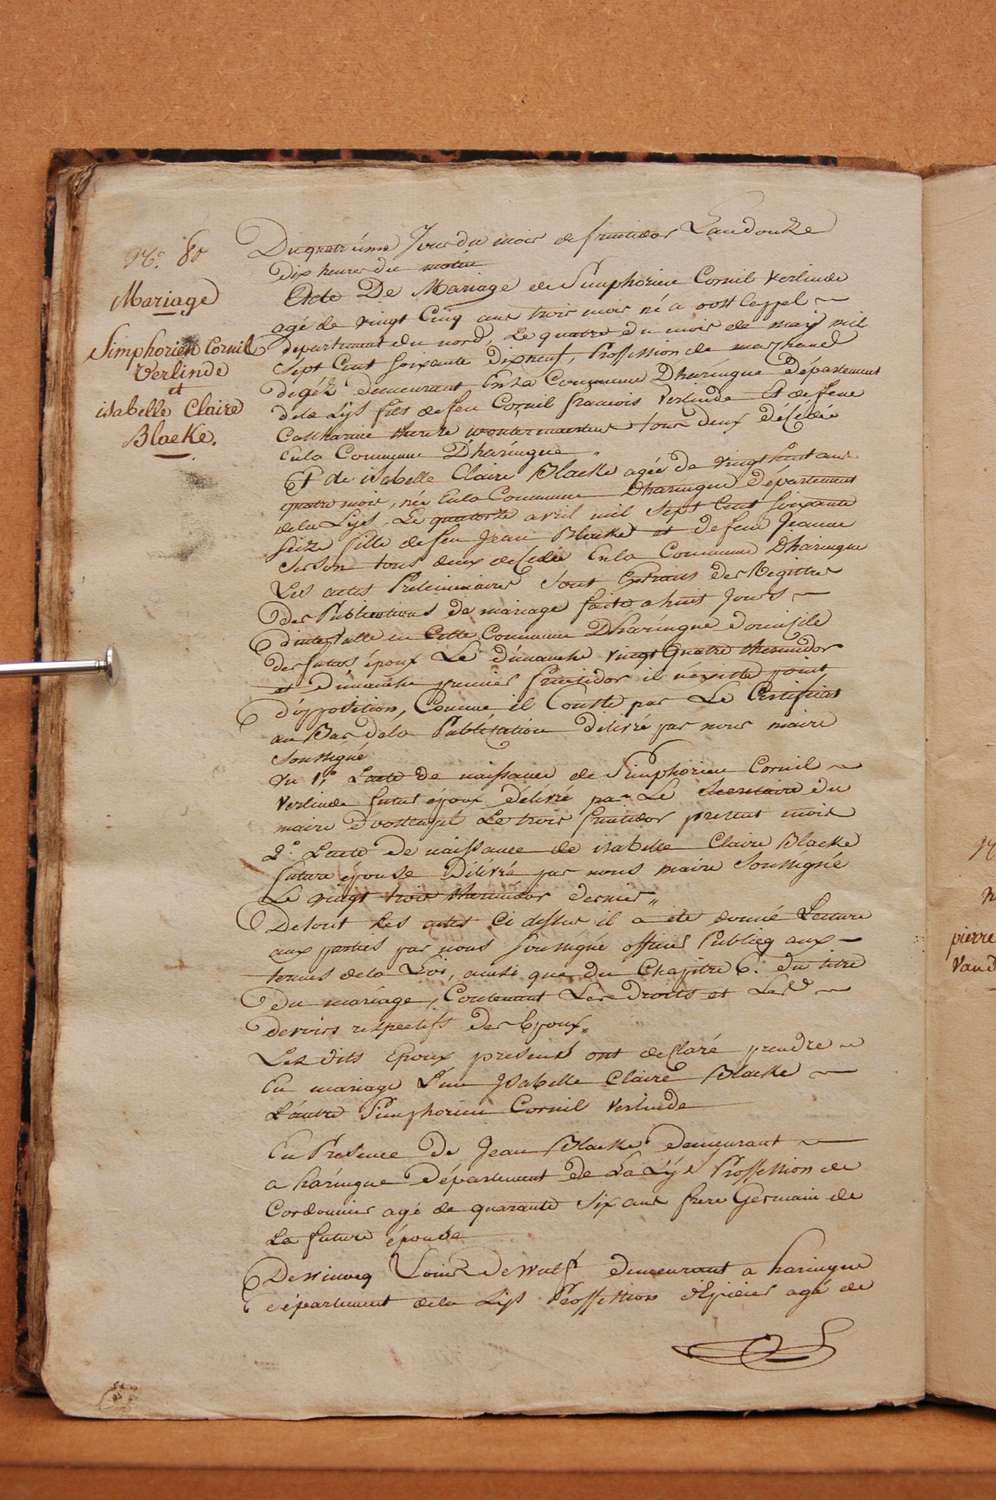 N.o 80
Mariage
Simphorien Cornil
Verlinde
et
isabelle Claire
Blaeke.
Du quatrième Jour du mois de fructidor L'an douze
Dix heures du matin
Acte De Mariage de Simphorien Cornil verlinde
agé de vingt Cinq ans trois mois né a oost Cappel
département du nord, Le quatre du mois de may mil
sept Cent soixante dixneuf, Proffession de marchand
demeurant En la Commune Dharingue département
de la Lÿs fils de feu Cornil francois verlinde Et de feue
Catharine therese tous deux décédée
en la Commune D'haringue.
Et de isabelle Claire Blaeke agée de vingt huit ans
quatre mois, née En la Commune Dharingue département
de la Lÿs, Le quatorze avril mil sept Cent soixante
seize fille de feu Jean Blaeke et de feue Jeanne
tous deux décédée En la Commune Dharingue
Les actes Préliminaires sont Extraits des Registres
des Publications de mariage faite a huit Jours
d'intervalle en Cette Commune Dharingue domicile
des futurs époux Le dimanche vingt quatre thermidor
et dimanche premier fructidor il n'existe point
d'opposition, Comme il Conste par Le Certificat
au Bas de la Publication délivré par nous maire
Soussigné
Vu 1.o L'acte de naissance de Simphorien Cornil
verlinde futur époux délivré par Le Secretaire du
maire D'oostcapel Le trois fructidor present mois
2.o L'acte de naissance de isabelle Claire Blaeke
future épouse Délivré par nous maire Soussignée
Le vingt trois thermidor dernier
De tout Les actes Ci dessus il a été donné Lecture
aux parties par nous soussigné officier Publicq aux
termes de la Loi, ainsi que du Chapitre 6. du titre
du mariage, Contenant Les Droits et Les
Devoirs respectifs des Epoux.
Les dits Epoux presents ont déclaré prendre
En mariage L'un Isabelle Claire Blaeke
L'autre Simphorien Cornil verlinde
En Présence de Jean Blaeke Demeurant
a haringue Département de La Lÿs Proffession de
Cordonnier agé de quarante Six ans frere Germain de
La future épouse
De Louis Dewulf demeurant a haringue
département de la Lÿs Proffession d'Epicier agé de
pierre